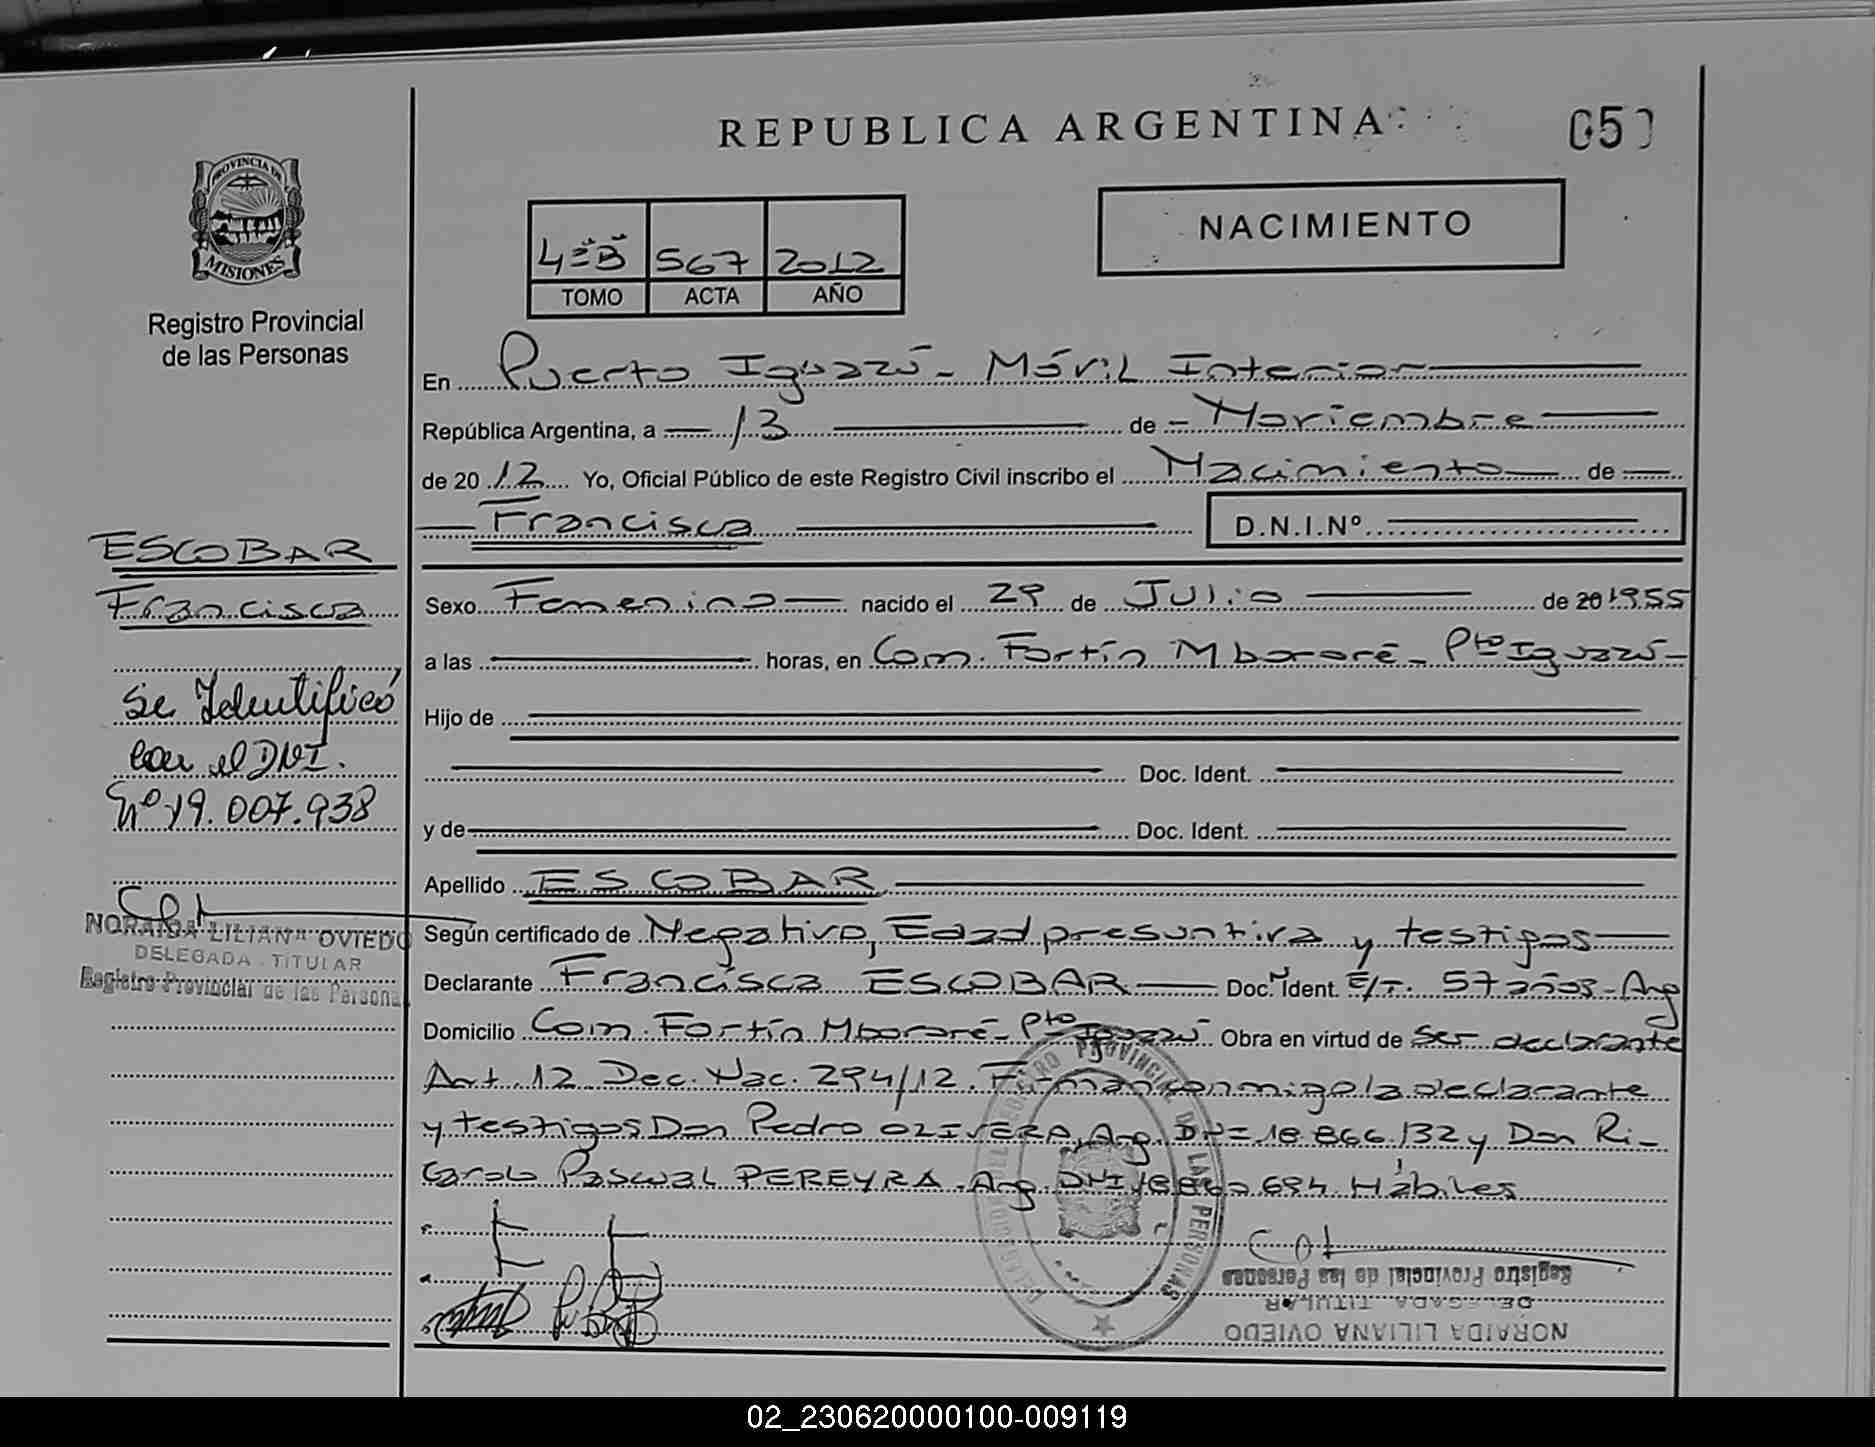 REPUBLICA ARGENTINA
05
PROVINCIA DE
MISIONES
Registro Provincial
de las Personas
NACIMIENTO
4º "B" 567 2012
TOMO ACTA AÑO
En Puerto Iguazú - Móvil Interior
República Argentina, a 13 de Noviembre
de 2012 Yo, Oficial Público de este Registro Civil inscribo el Nacimiento de
Francisca D.N.I.Nº
ESCOBAR
Francisca
Se Identificó
con el DNI.
Nº 19.007.938
NORAIDA LILIANA OVIEDO
DELEGADA TITULAR
Registro Provincial de las Persona
Sexo Femenino nacido el 29 de Julio de 20 1955
a las horas, en Com. Fortín Mbororé - Pto Iguazú -
Hijo de
Doc. Ident.
y de Doc. Ident.
Apellido ESCOBAR
Según certificado de Negativo, Edad presuntiva y testigos
Declarante Francisca ESCOBAR Doc. Ident. E/T. 57 años - Arg
Domicilio Com. Fortín Mbororé - Pto Iguazú Obra en virtud de Ser declarante
Art. 12 Dec. Nac. 294/12. Firman conmigo la declarante
y testigos Don Pedro OLIVERA, Arg. DNI 18.866.132 y Don Ri-
cardo Pascual PEREYRA. Arg. DNI 694. Hábiles
REGISTRO PROVINCIAL DE LAS PERSONAS
Registro Provincial de las Personas
DELEGADA TITULAR
NORAIDA LILIANA OVIEDO
02_230620000100-009119